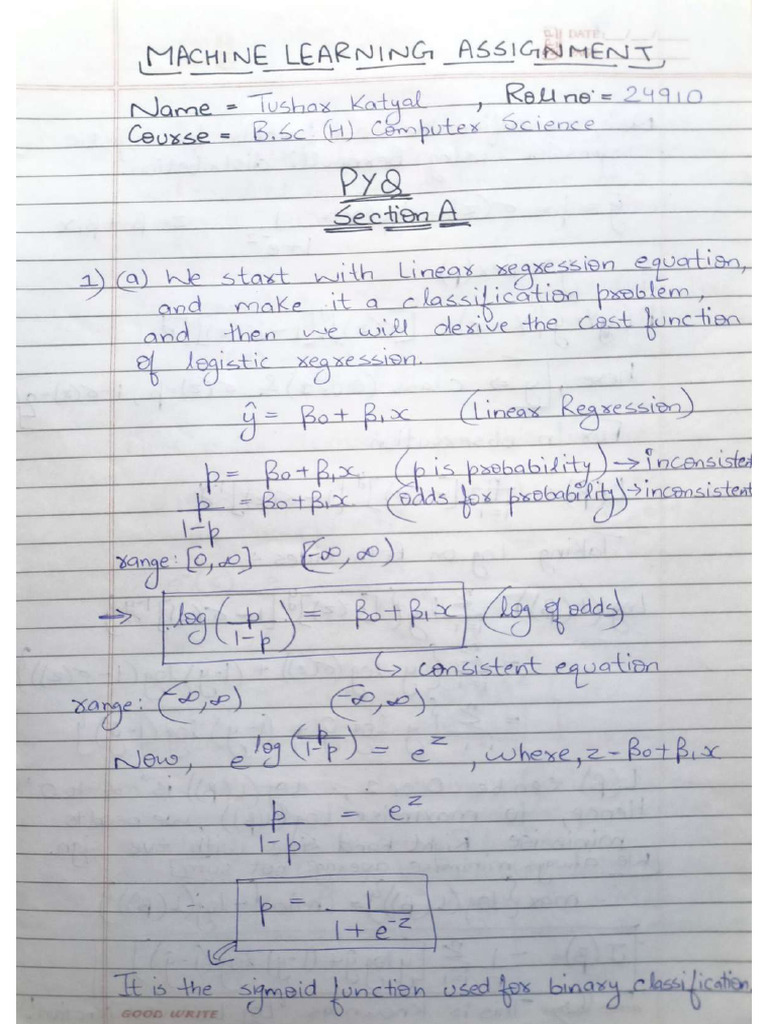 DATE: __/__/__
MACHINE LEARNING ASSIGNMENT
Name = Tushar Katyal , Roll no = 24910
Course = B.Sc (H) Computer Science
PYQ
Section A
1) (a) We start with Linear regression equation,
and make it a classification problem,
and then we will derive the cost function
of logistic regression.
ŷ = β0 + β1x (Linear Regression)
p = β0 + β1x (p is probability) → inconsistent
p/1-p = β0 + β1x (odds for probability) → inconsistent
range: [0, ∞] (-∞, ∞)
→ log(p/1-p) = β0 + β1x (log of odds)
↳ consistent equation
range: (-∞, ∞) (-∞, ∞)
Now, e^log(p/1-p) = e^z , where, z = β0 + β1x
p/1-p = e^z
p = 1/1+e^-z
It is the sigmoid function used for binary classification
GOOD WRITE